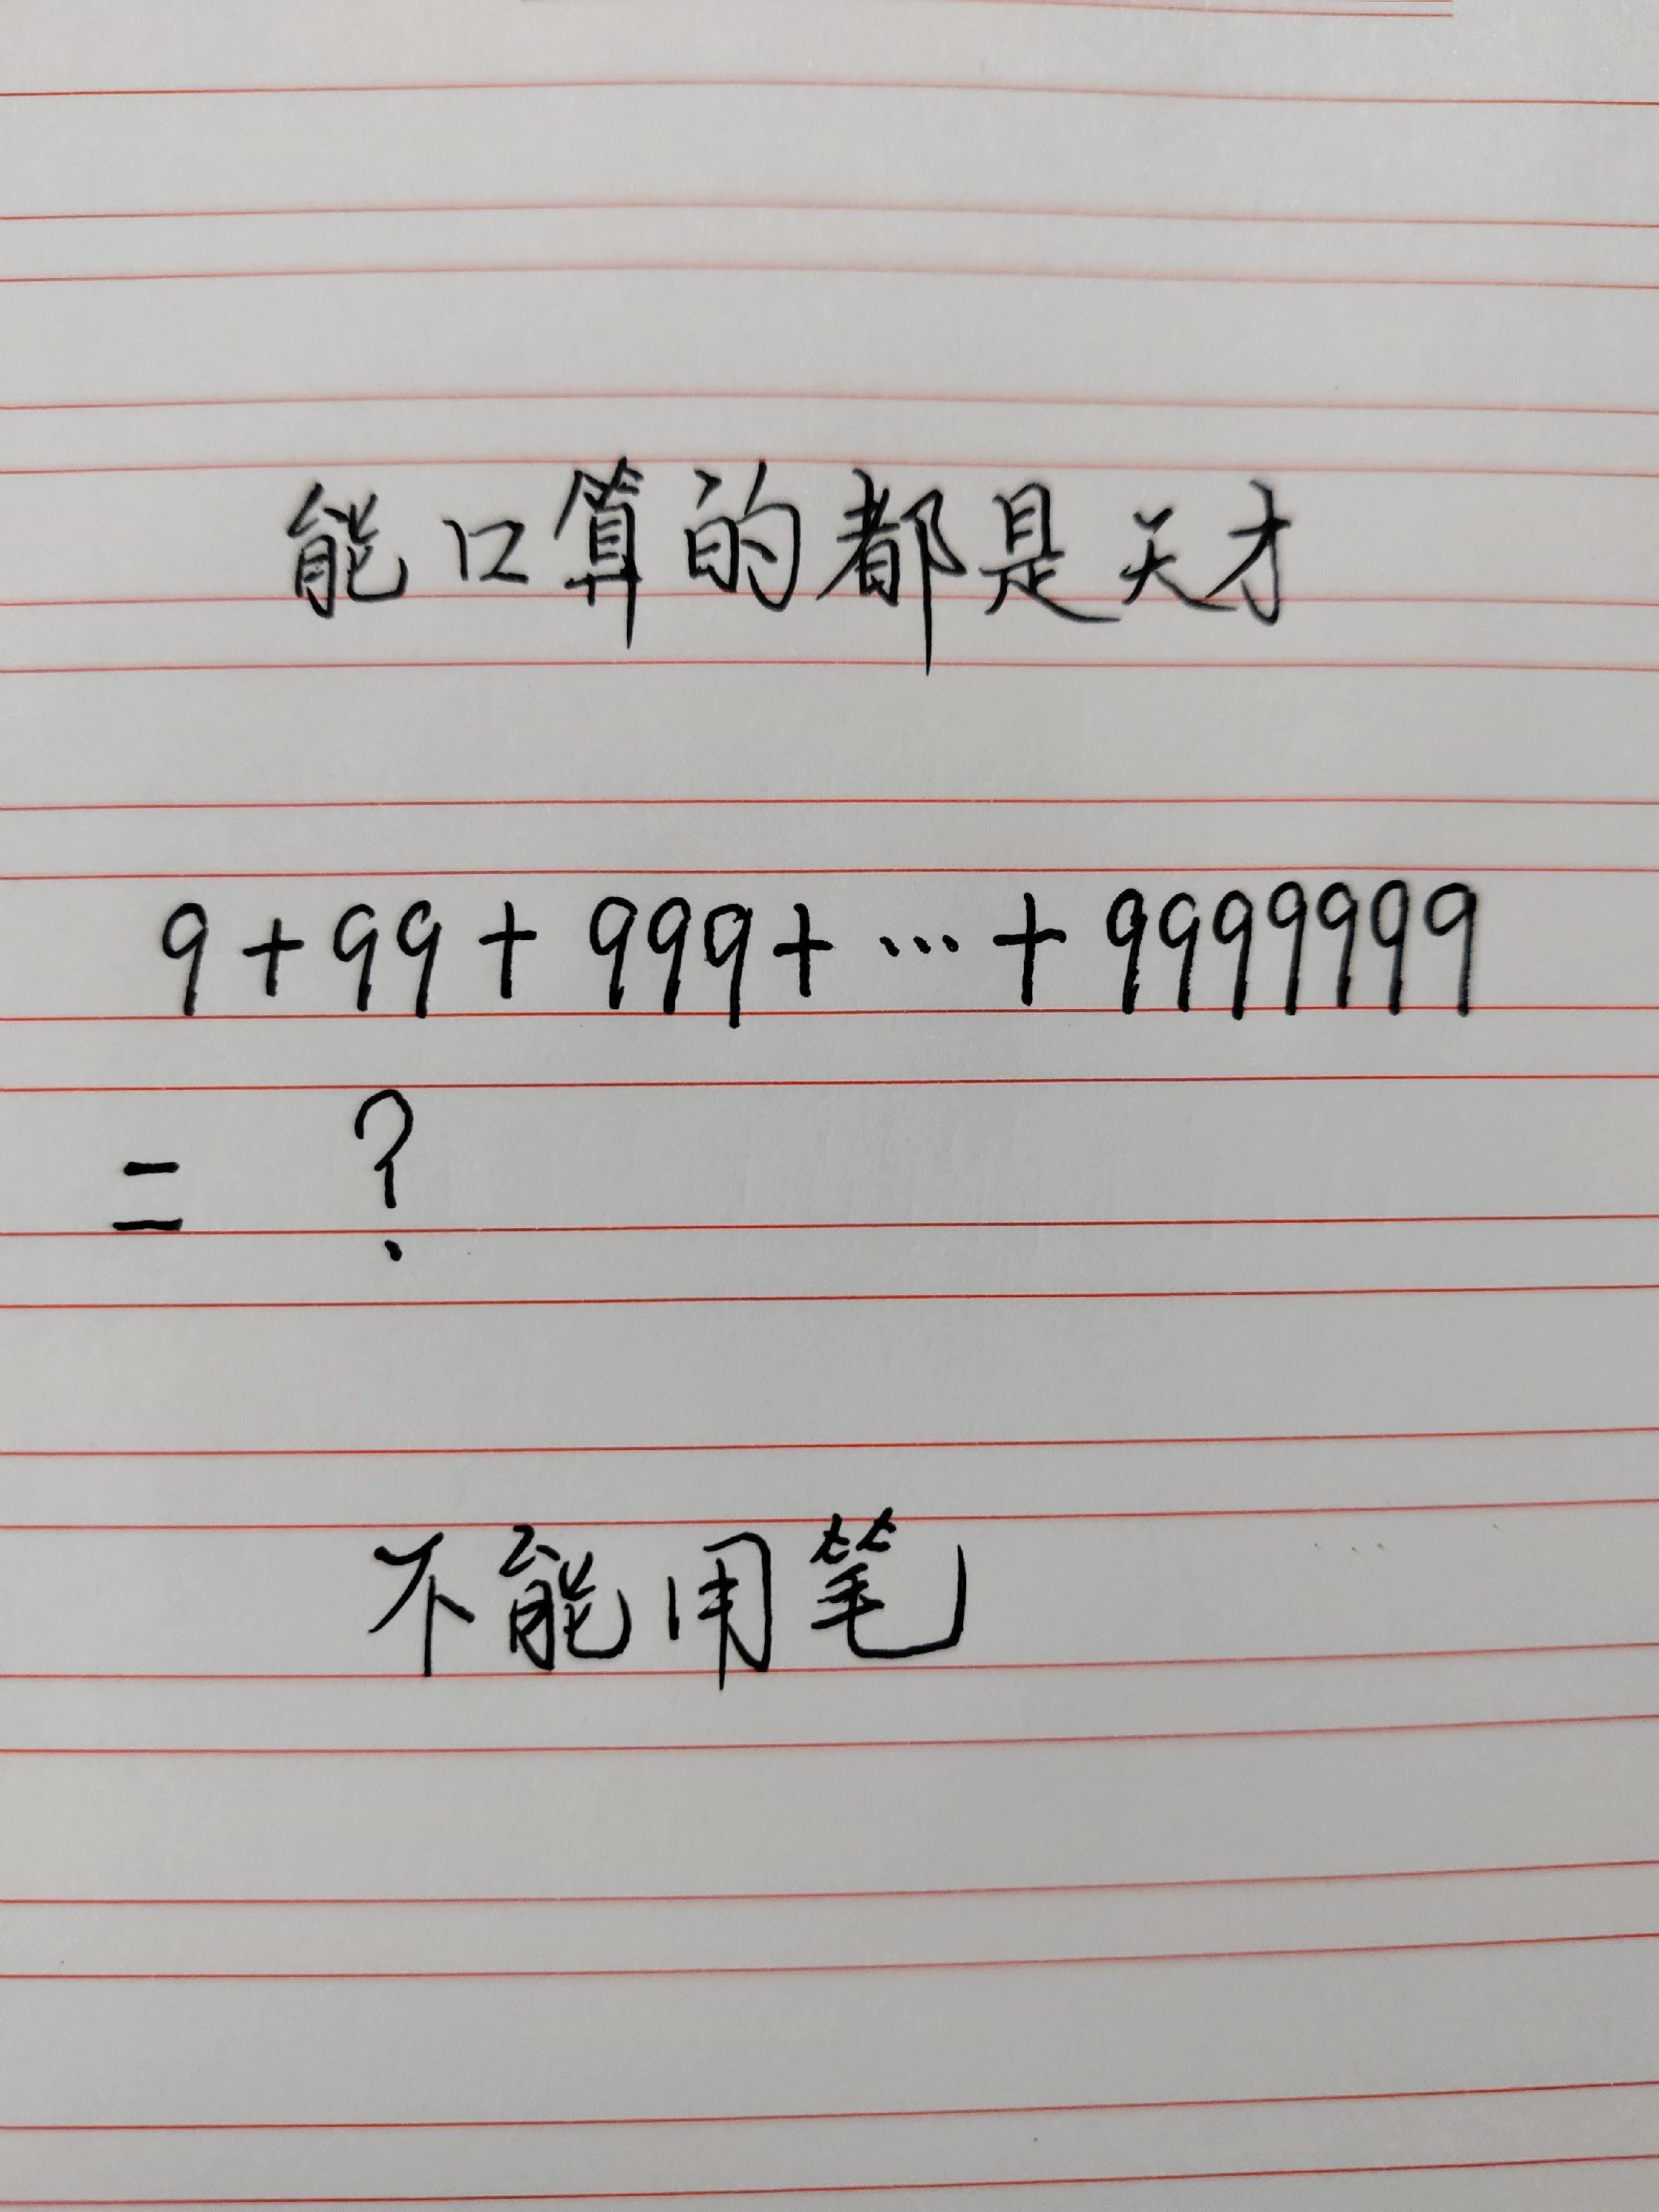 能口算的都是天才
9+99+999+…+9999999
= ?
不能用笔